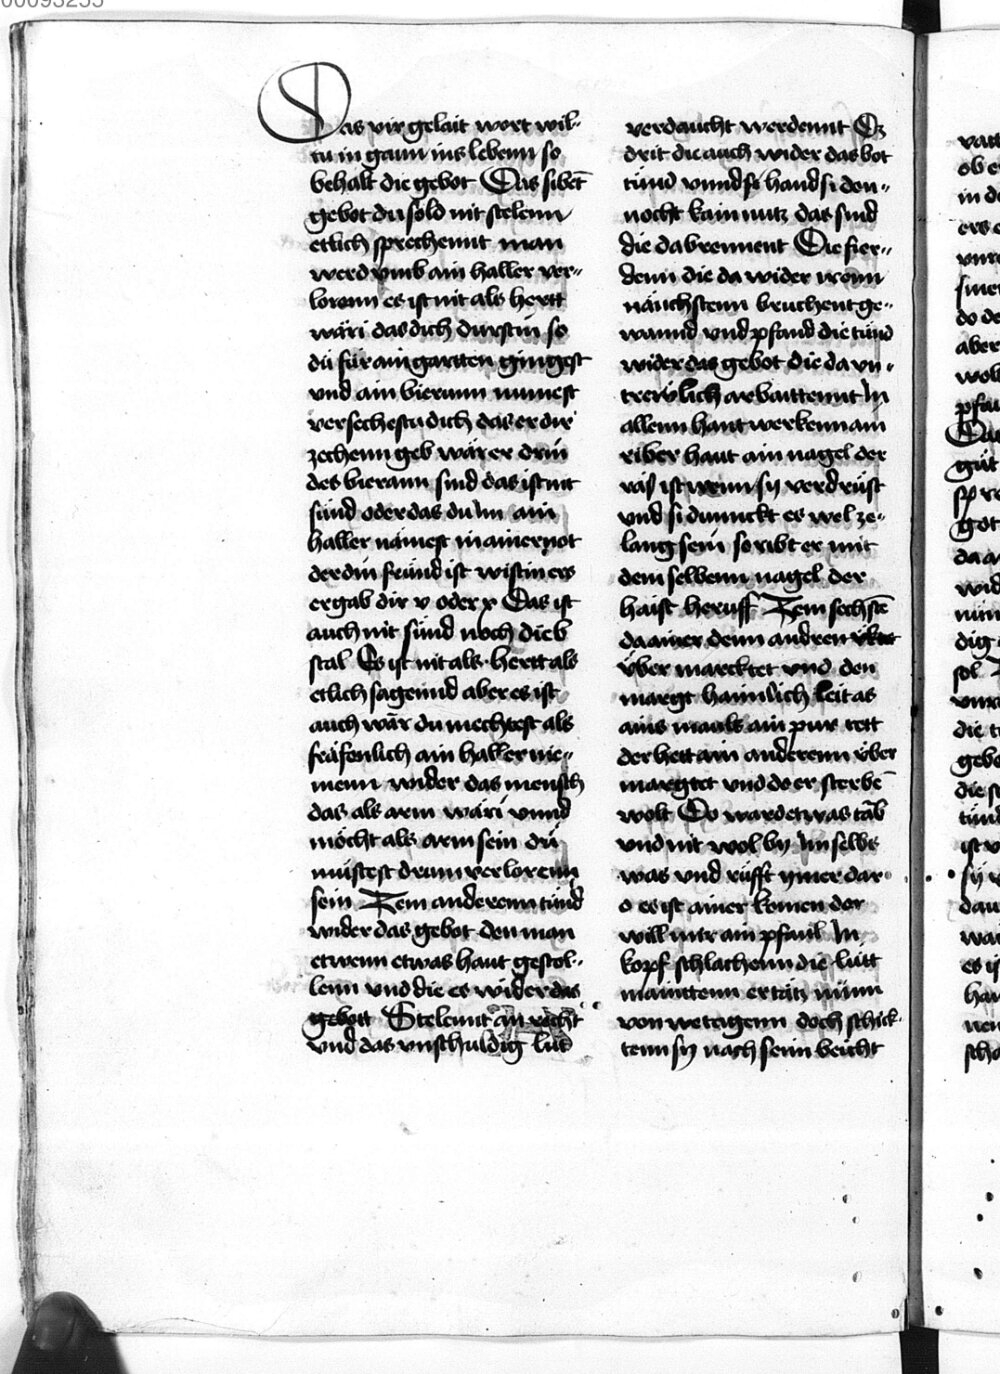 00093255
Das vir gelait wort wil-
tu in gaun ins lebenn so
behalt die gebot Das sibet̄
gebot du sold nit stelenn
etlich sprechennt man
werd vmb ain haller ver-
lorenn es ist nit als hertt
wäri das dich durstin so
du für ain gartten gingest
vnd ain bierann nimest
versechestu dich das er dir
zechenn geb wär er drin
des bierann sind das ist nit
sünd oder das du Im ain
haller nämest in ainer not
der din fründ ist wistin ers
er gäb dir v oder x Das ist
auch nit sünd noch dieb
stal Es ist nit als hertt als
etlich sagennd aber es ist
auch wär du mechtest als
fräfenlich ain haller ne-
menn wider das mensch
das als arm wäri vnnd
möcht als arm sein du
müstest drum verlorenn
sein Zem anderenn tünd
wider das gebot den man
etwenn etwas haut gestol-
lenn vnd die es wider das
gebott Stelennt an recht
vnd das vnschuldig lüt
verdaucht werdennt Es
drit die auch wider das bot
tünd vnnd si hand si den-
nocht kain nutz das sind
die da brennent Die fier-
denn die da wider irenn
näuchstenn bruchent ge-
wannd vnd pfand die tünd
wider das gebot die da vn-
trewlich arbaittennt In
allenn hantwerkenn ain
riber haut ain nagel der
räs ist wenn sy verdrüst
vnd si dunnckt es wel ze-
lang sein so ribt er mit
dem selbenn nagel der
haist heruff Zem sechste
da ainer denn andren
über marcktet vnd den
margt haimlich leit as
ains mauls ain pur tett
der hett ain anderenn über
margtet vnd do er sterbē
wolt Do ward etwas tāb
vnd nit wol by Im selbs
was vnd rüfft ymer dar
o es ist ainer komen der
will mir ain pfaul In
kopf schlachenn die lütt
mainttenn er tätz nünn
von wetagenn doch schick-
tenn sy nach seim beicht